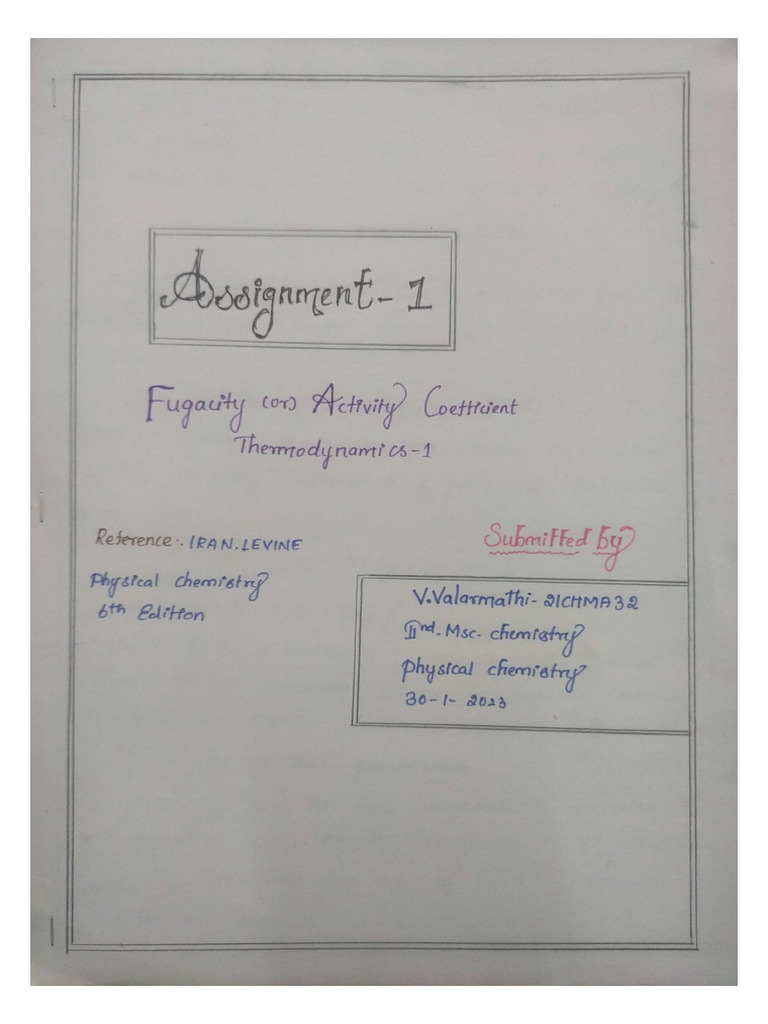 Assignment - 1
Fugacity (or) Activity Coefficient
Thermodynamics-1
Reference:. IRAN.LEVINE
Physical chemistry
6th Edition
Submitted by
V.Valarmathi - 21CHMA32
IInd. Msc. chemistry
physical chemistry
30-1-2023